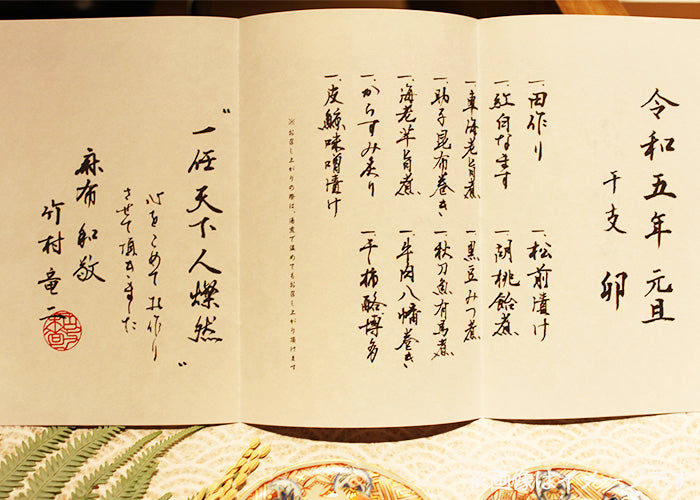 令和五年 元旦
干支 卯
一、田作り
一、紅白なます
一、車海老旨煮
一、助子昆布巻き
一、海老芋旨煮
一、からすみ炙り
一、皮鯨味噌漬け
一、松前漬け
一、胡桃飴煮
一、黒豆みつ煮
一、秋刀魚有馬煮
一、牛肉八幡巻き
一、干柿酪博多
※お召し上がりの際は、湯煎で温めてもお召し上がり頂けます
"一任天下人燦然"
心をこめてお作り
させて頂きました
麻布 和敬
竹村竜二
画像はイメージ